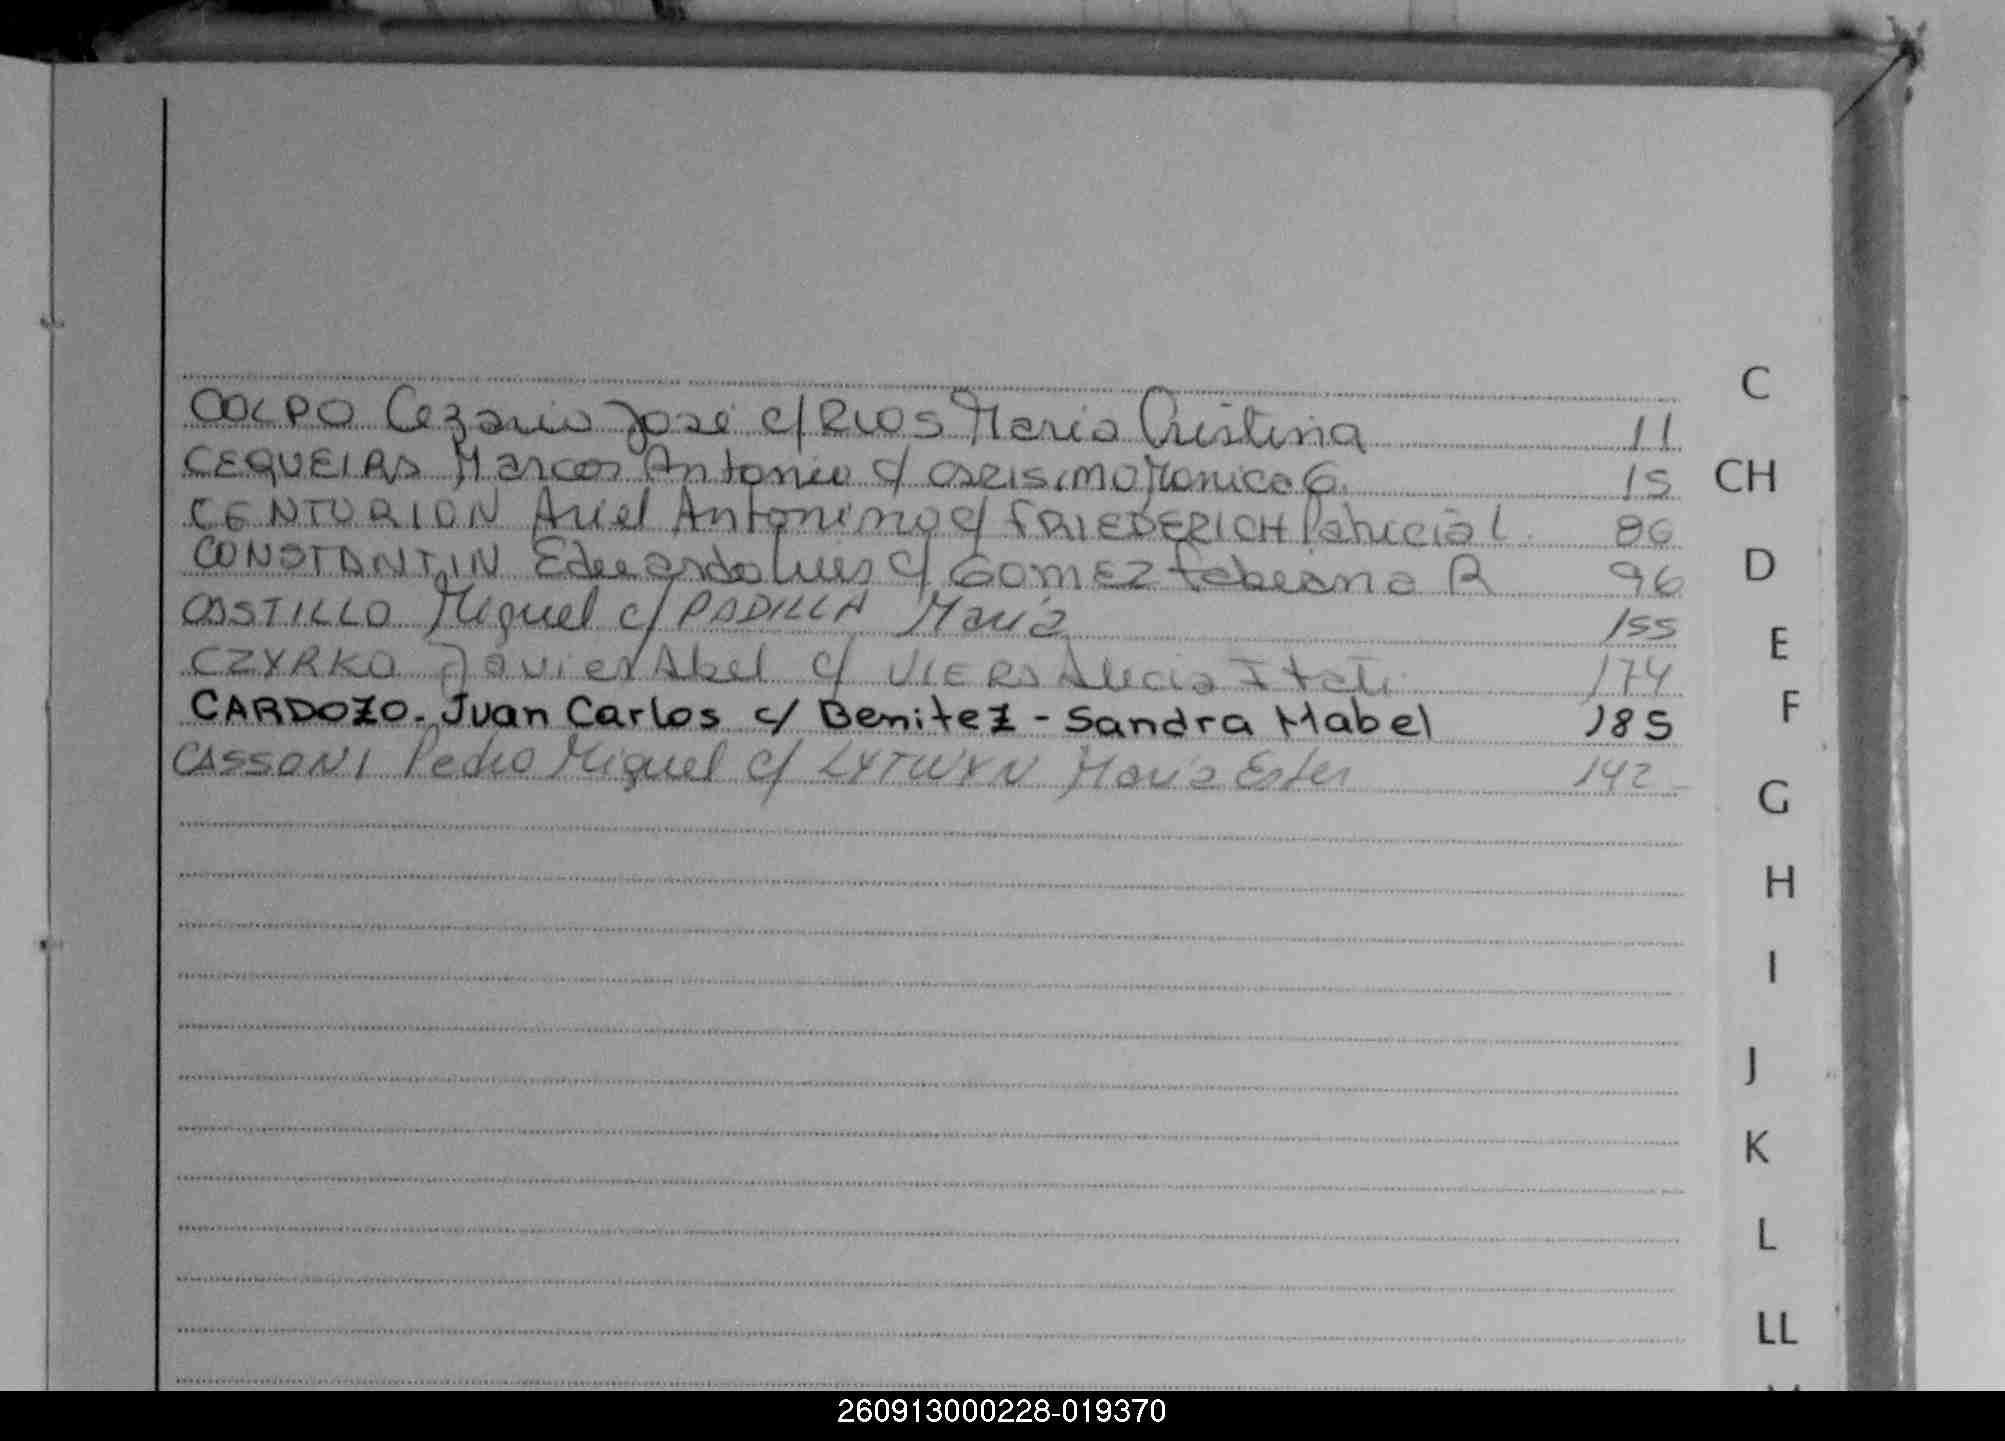 COLPO Cezario José c/ RIOS Maria Cristina 11
CEQUEIRA Marcos Antonio c/ Monica G. 15
CENTURION Ariel Antonimo c/ FRIEDERICH Patricia L. 86
CONSTANTIN Eduardo Luis c/ GOMEZ Fabiana R 96
CASTILLO Miguel c/ PADILLA María 155
CZYRKO Javier Abel c/ VIERA Alicia Itati 174
CARDOZO. Juan Carlos c/ Benitez - Sandra Mabel 185
CASSONI Pedro Miguel c/ LYTWYN María Ester 142
C
CH
D
E
F
G
H
I
J
K
L
LL
260913000228-019370